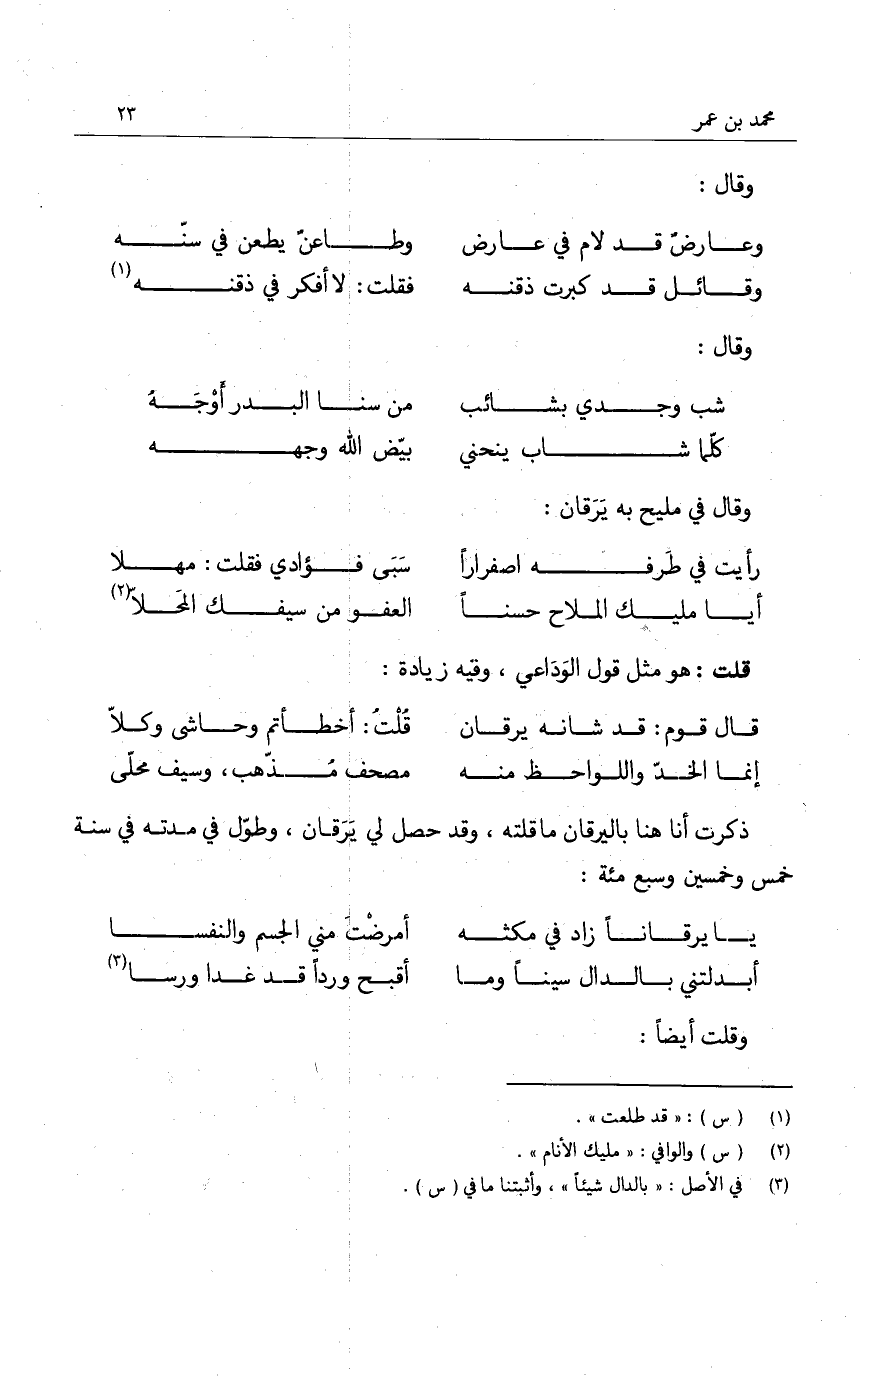 محمد بن عمر ٢٣
وقال :
وعارضٌ قد لام في عارض وطاعنٌ يطعن في سنّه
وقائل قد كبرت ذقنه فقلت : لا أفكر في ذقنه(١)
وقال :
شب وجدي بشائب من سنا البدر أَوْجَهُ
كلّما شاب ينحني بيّض الله وجهه
وقال في مليح به يَرَقان :
رأيت في طَرفه اصفراراً سَبَى فؤادي فقلت : مهلا
أيا مليك الملاح حسناً العفو من سيفك المَحَلاّ(٢)
قلت : هو مثل قول الوَدَاعي ، وفيه زيادة :
قال قوم : قد شانه يرقان قُلْتُ : أخطأتم وحاشى وكلاّ
إنما الخدّ واللواحظ منه مصحف مُذّهب ، وسيف محلّى
ذكرت أنا هنا باليرقان ما قلته ، وقد حصل لي يَرَقان ، وطوّل في مدته في سنة
خمس وخمسين وسبع مئة :
يا يرقاناً زاد في مكثه أمرضْتَ مني الجسم والنفسا
أبدلتني بالدال سيناً وما أقبح ورداً قد غدا ورسا(٣)
وقلت أيضاً :
(١) ( س ) : « قد طلعت » .
(٢) ( س ) والوافي : « مليك الأنام » .
(٣) في الأصل : « بالدال شيئاً » ، وأثبتنا ما في ( س ) .